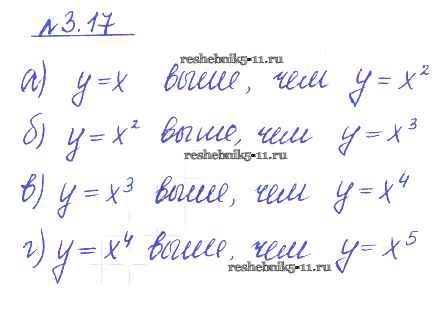 №3.17
reshebnik5-11.ru
а) y=x выше, чем y=x²
б) y=x² выше, чем y=x³
reshebnik5-11.ru
в) y=x³ выше, чем y=x⁴
г) y=x⁴ выше, чем y=x⁵
reshebnik5-11.ru